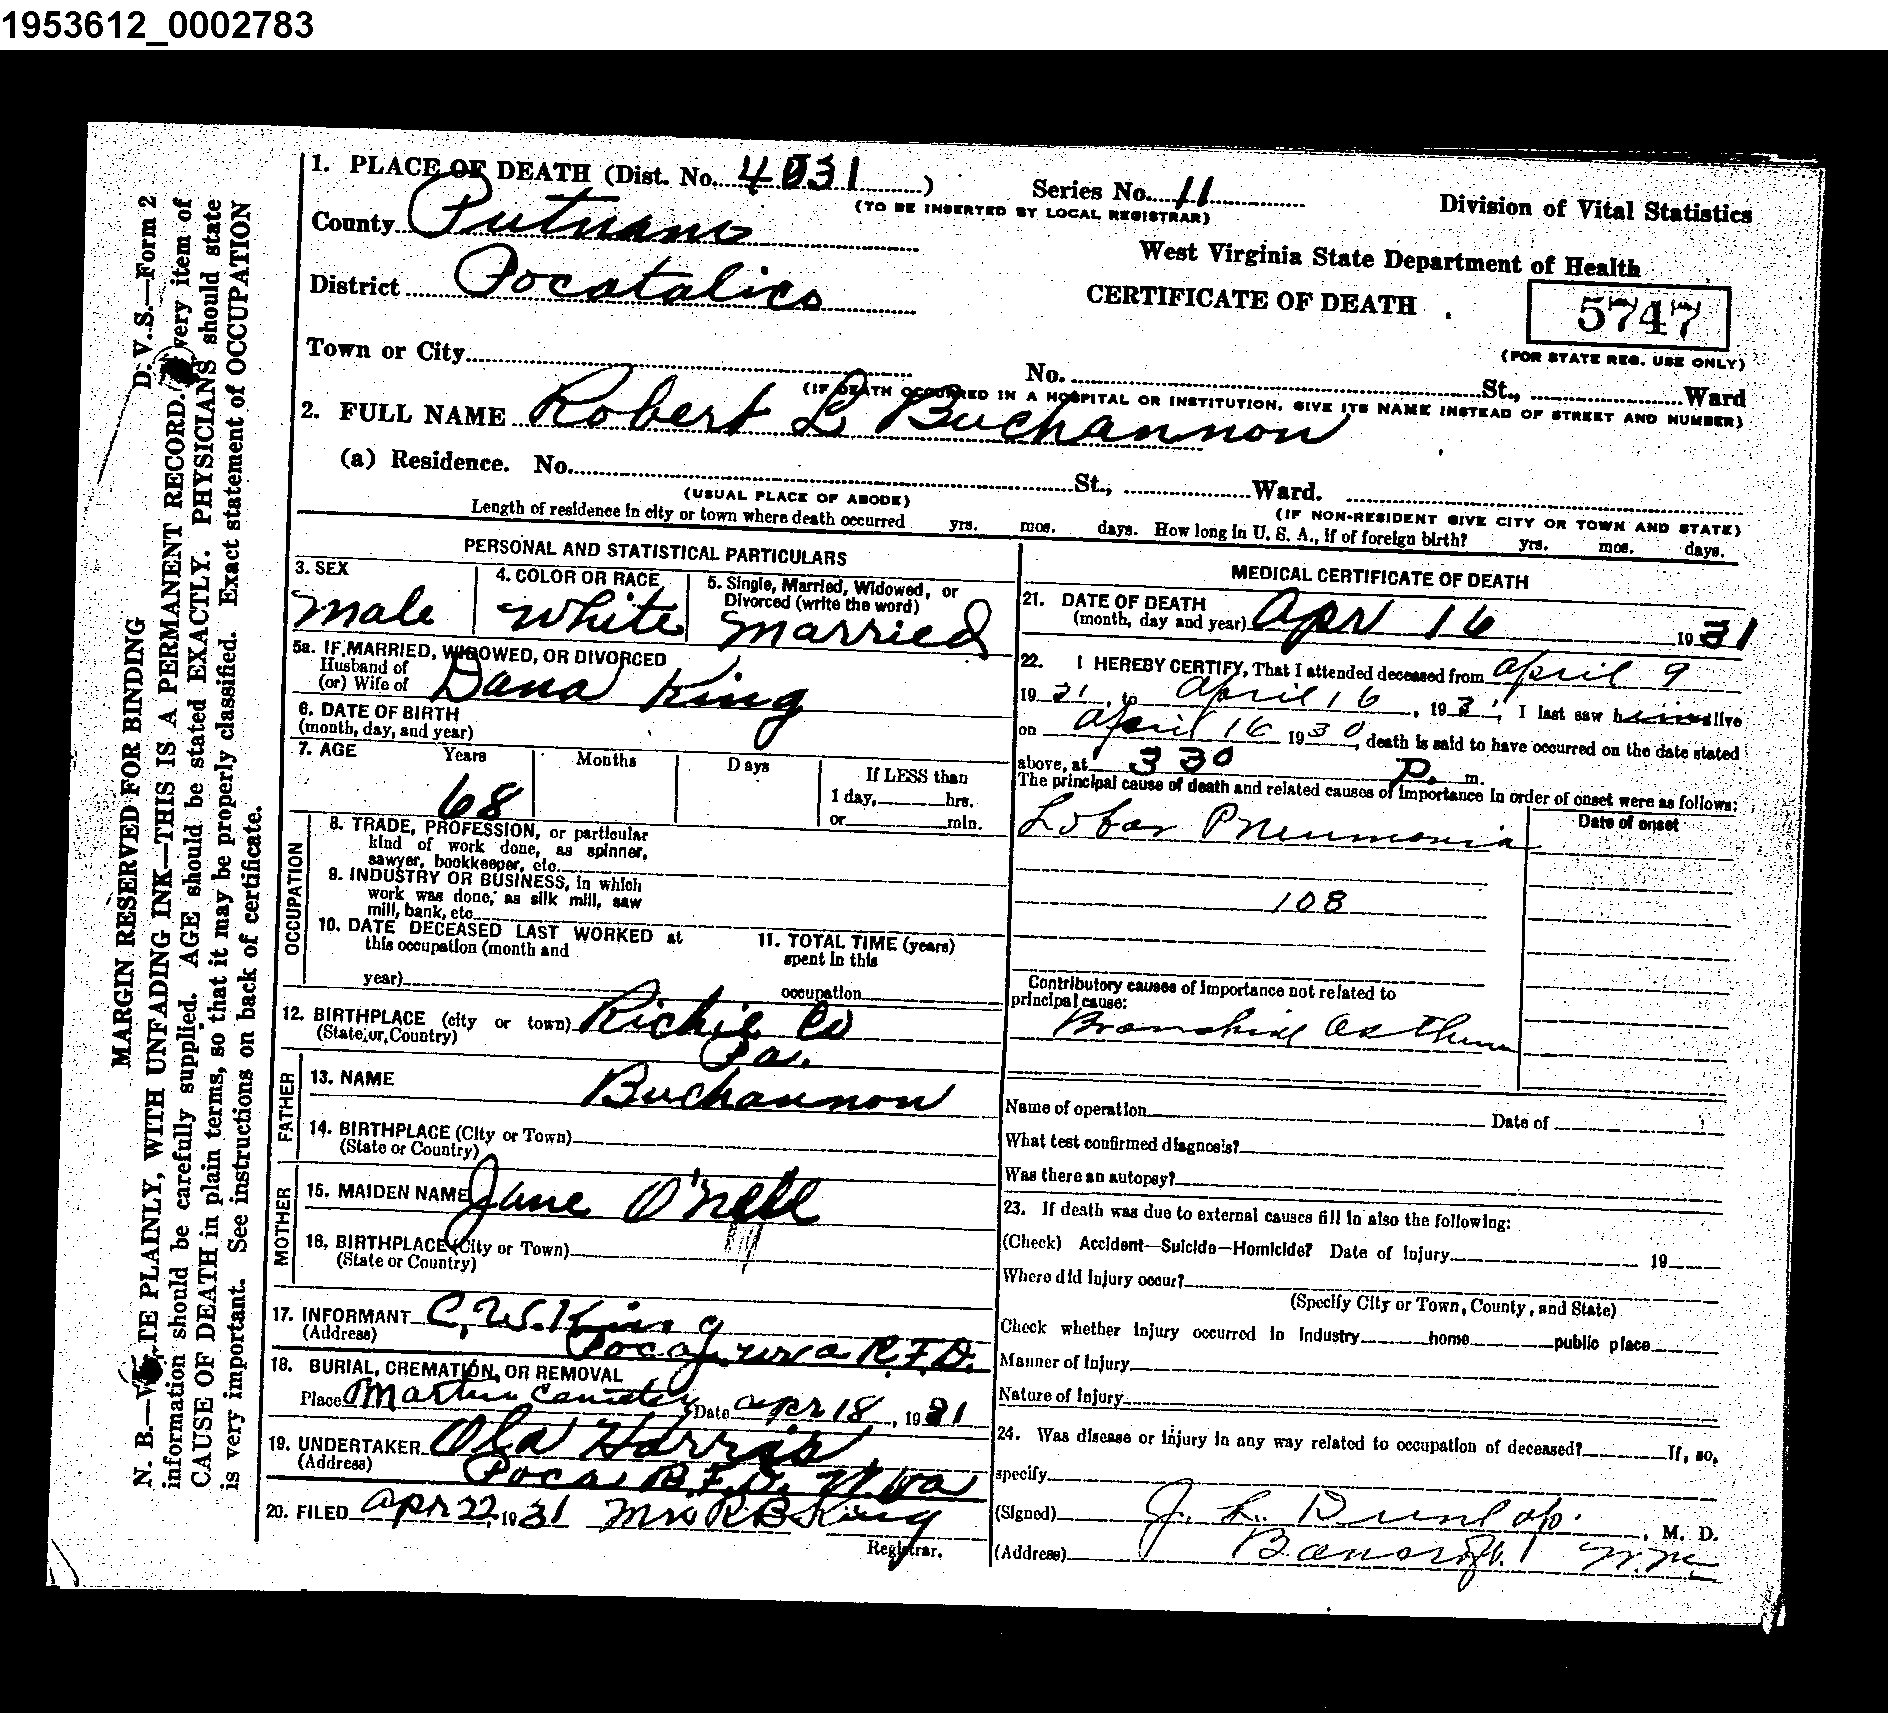 1953612_0002783
1. PLACE OF DEATH (Dist. No. 4031 ) Series No. 11
(TO BE INSERTED BY LOCAL REGISTRAR)
Division of Vital Statistics
County Putnam
West Virginia State Department of Health
District Pocatalico
CERTIFICATE OF DEATH
5747
(FOR STATE REG. USE ONLY)
Town or City
No. St., Ward
(IF DEATH OCCURRED IN A HOSPITAL OR INSTITUTION, GIVE ITS NAME INSTEAD OF STREET AND NUMBER)
2. FULL NAME Robert L Buchannon
(a) Residence. No. St., Ward.
(USUAL PLACE OF ABODE) (IF NON-RESIDENT GIVE CITY OR TOWN AND STATE)
Length of residence in city or town where death occurred yrs. mos. days. How long in U. S. A., if of foreign birth? yrs. mos. days.
PERSONAL AND STATISTICAL PARTICULARS
3. SEX
Male
4. COLOR OR RACE
White
5. Single, Married, Widowed, or
Divorced (write the word)
Married
5a. IF MARRIED, WIDOWED, OR DIVORCED
Husband of
(or) Wife of Dana King
6. DATE OF BIRTH
(month, day, and year)
7. AGE Years Months Days If LESS than
1 day, hrs.
or min.
68
OCCUPATION
8. TRADE, PROFESSION, or particular
kind of work done, as spinner,
sawyer, bookkeeper, etc.
9. INDUSTRY OR BUSINESS, in which
work was done, as silk mill, saw
mill, bank, etc
10. DATE DECEASED LAST WORKED at
this occupation (month and
year)
11. TOTAL TIME (years)
spent in this
occupation
12. BIRTHPLACE (city or town) Richie Co
(State or Country)
FATHER
13. NAME Buchannon
14. BIRTHPLACE (City or Town)
(State or Country)
MOTHER
15. MAIDEN NAME Jane O'Neil
16. BIRTHPLACE (City or Town)
(State or Country)
17. INFORMANT C. W. King
(Address) Poca R.F.D.
18. BURIAL, CREMATION, OR REMOVAL
Place Martin Cemetery Date Apr 18, 1931
19. UNDERTAKER Ola Harris
(Address) Poca R.F.D. W Va
20. FILED Apr 22, 1931 Mrs R B King
Registrar.
MEDICAL CERTIFICATE OF DEATH
21. DATE OF DEATH
(month, day and year) Apr 16 1931
22. I HEREBY CERTIFY, That I attended deceased from April 9
1931 to April 16, 1931, I last saw him alive
on April 16 1930, death is said to have occurred on the date stated
above, at 3 30 P. m.
The principal cause of death and related causes of importance in order of onset were as follows:
Date of onset
Lobar Pneumonia
108
Contributory causes of importance not related to
principal cause:
Bronchial Asthma
Name of operation Date of
What test confirmed diagnosis?
Was there an autopsy?
23. If death was due to external causes fill in also the following:
(Check) Accident—Suicide—Homicide? Date of Injury 19
Where did injury occur?
(Specify City or Town, County, and State)
Check whether injury occurred in industry home public place
Manner of Injury
Nature of Injury
24. Was disease or injury in any way related to occupation of deceased? If, so,
specify
(Signed) J. L. Dunlap. , M. D.
(Address) Bancroft W. Va
D. V. S.—Form 2
MARGIN RESERVED FOR BINDING
N. B.—WRITE PLAINLY, WITH UNFADING INK—THIS IS A PERMANENT RECORD. Every item of
information should be carefully supplied. AGE should be stated EXACTLY. PHYSICIANS should state
CAUSE OF DEATH in plain terms, so that it may be properly classified. Exact statement of OCCUPATION
is very important. See instructions on back of certificate.